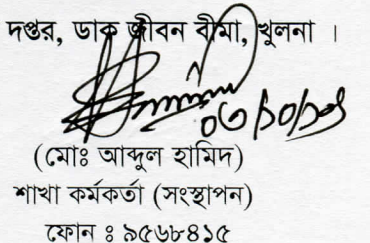 দপ্তর, ডাক জীবন বীমা, খুলনা ।
(মোঃ আব্দুল হামিদ)
শাখা কর্মকর্তা (সংস্থাপন)
ফোন ঃ ৯৫৬৮৪১৫